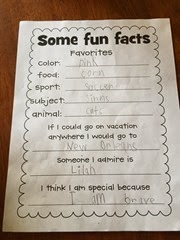 Some fun facts
Favorites
color: pink
food: corn
sport: soccer
subject:
animal: cats
If I could go on vacation
anywhere I would go to
New Orleans
Someone I admire is
Lilah
I think I am special because
I am brave